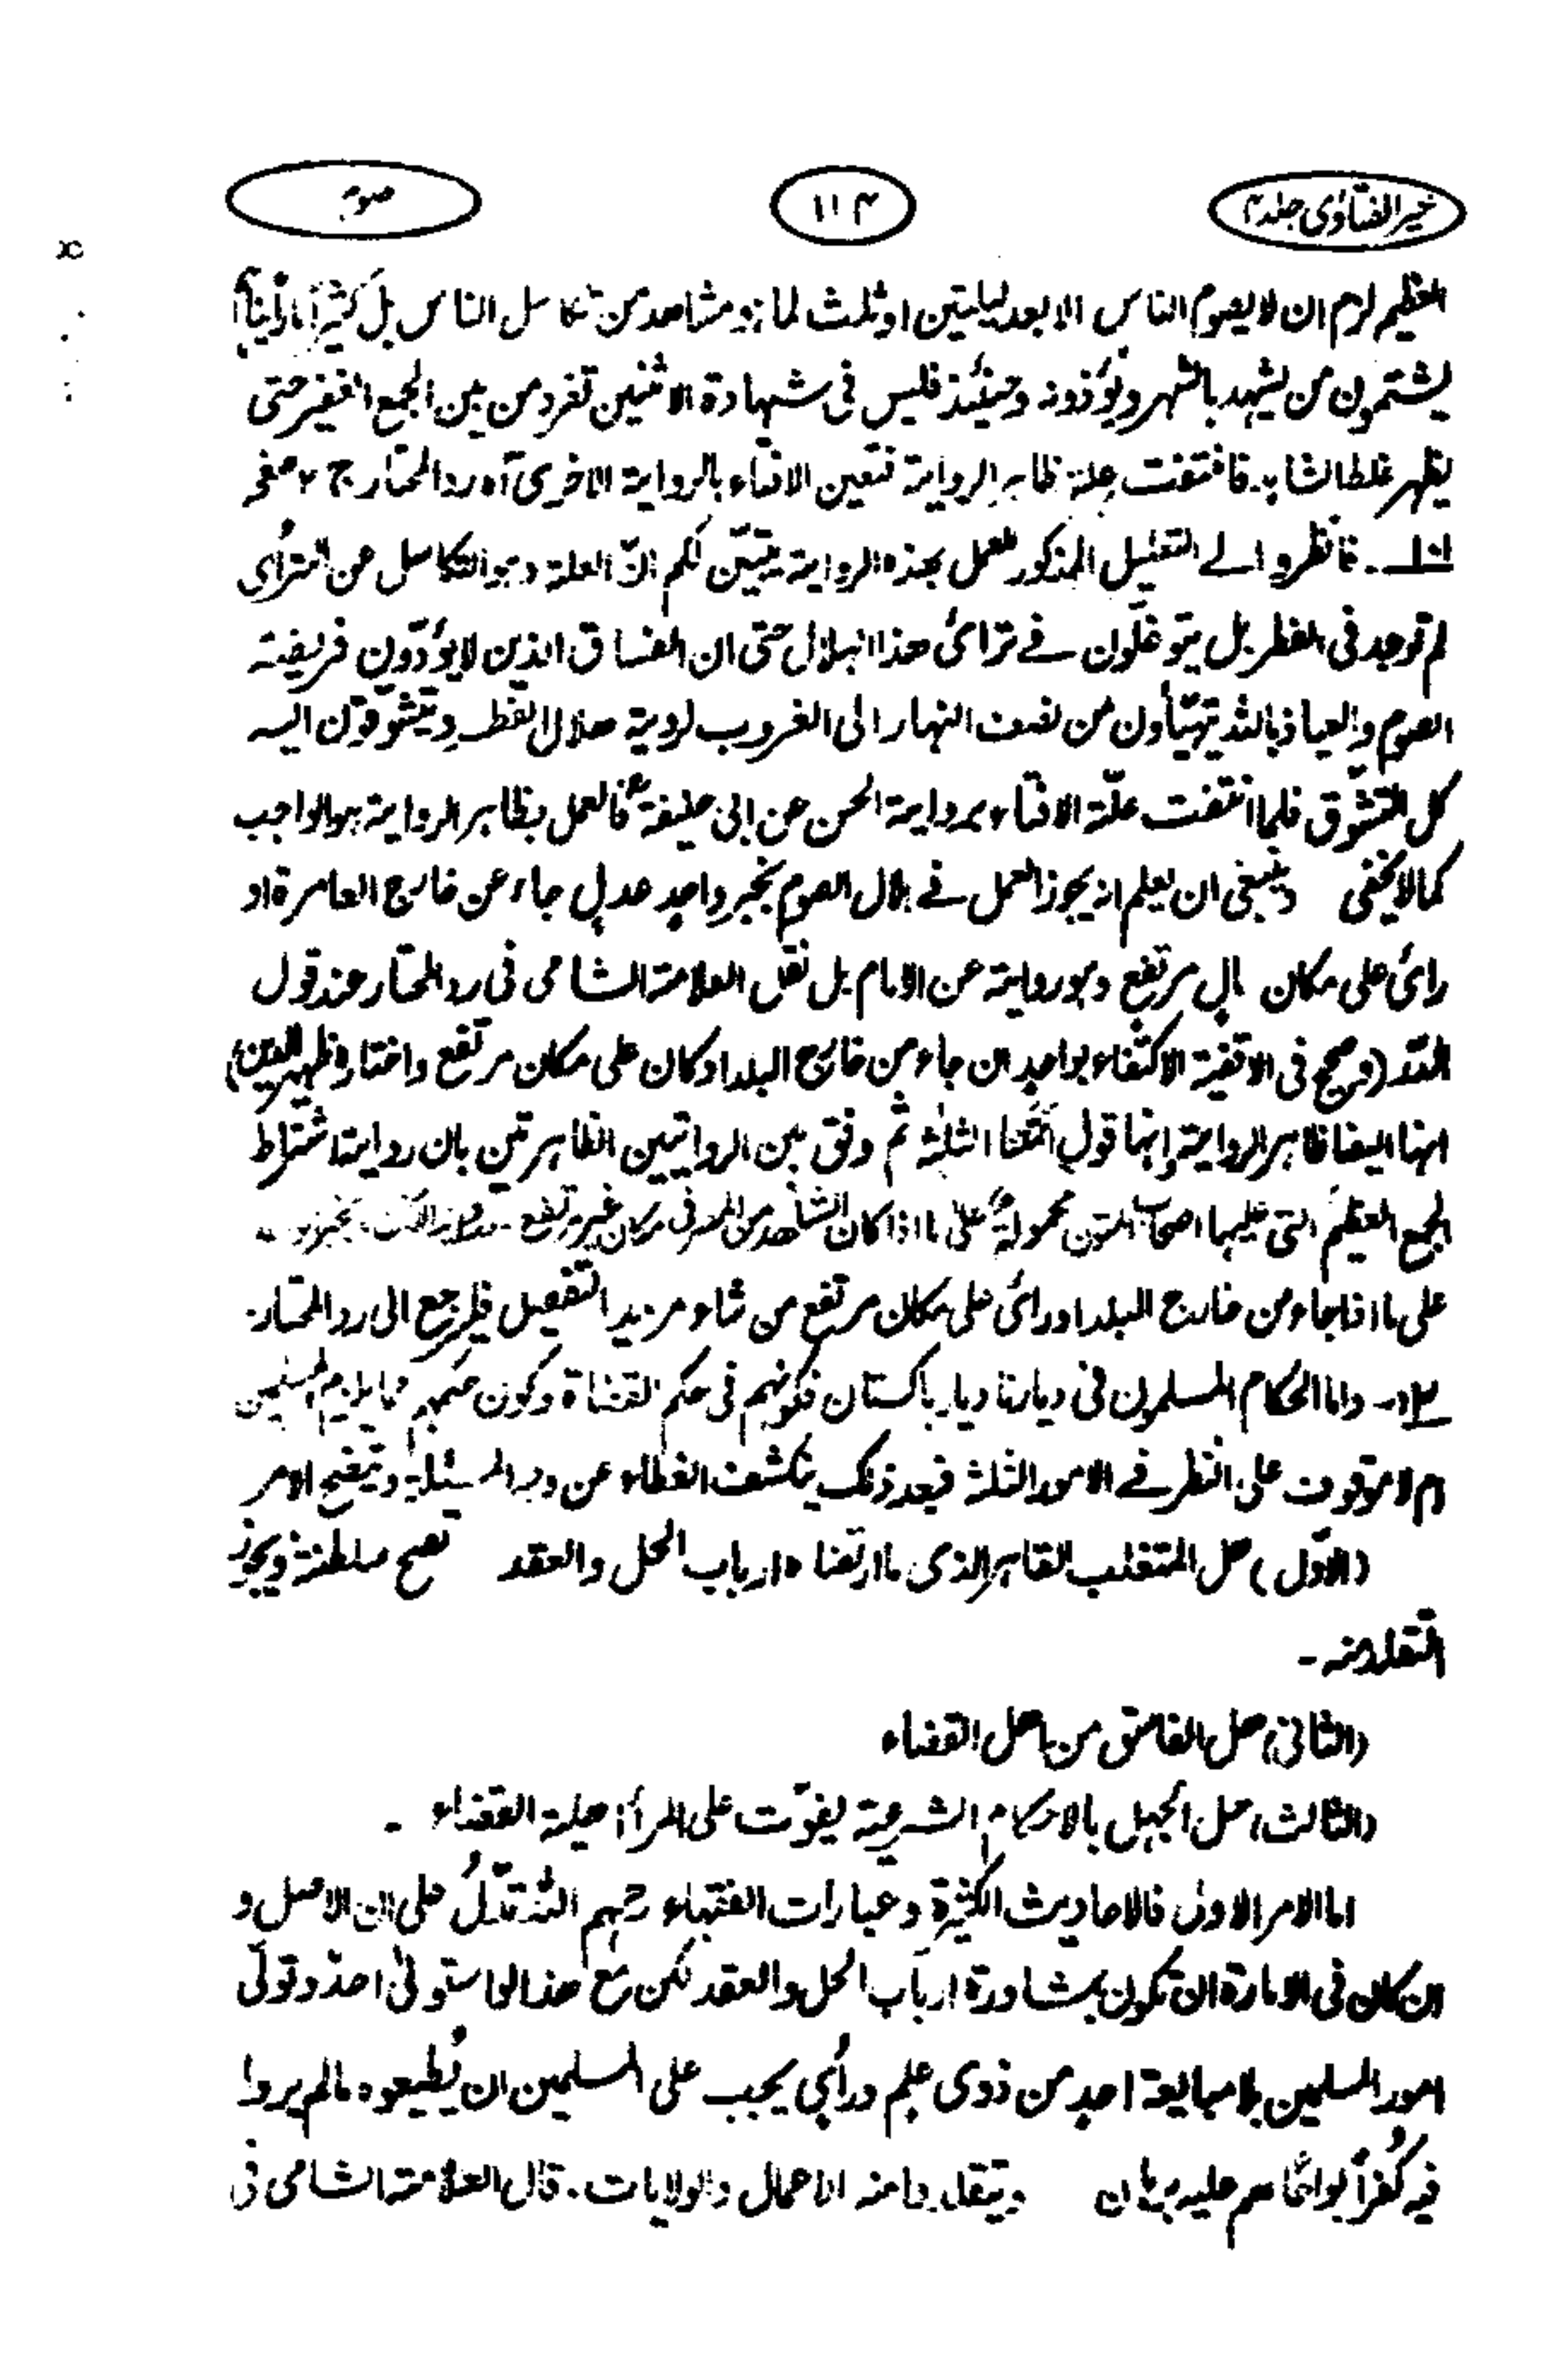 خیر الفتاوی جلد ۴
۱۱۴
صوم
العظیم لزم ان لا یصوم الناس الا بعد لیلتین او ثلث لما ہو مشاھد من تکاسل الناس بل کثیراً ما رأینا
یشتمون من یشہد بالشہر ویؤذونہ وحینئذ فلیس فی شہادۃ الاثنین تفرد من بین الجمع الغفیر حتی
یظہر غلط الشاہد فانتفت علۃ ظاہر الروایۃ فتعین الافتاء بالروایۃ الاخری آہ رد المحتار ج ۲ صفحہ
فانظروا الے التعلیل المذکور للعمل بھذہ الروایۃ یتبیّن لکم انّ العلۃ وہو التکاسل عن الترأی
لم توجد فی الفطر بل یتوغّلون فے ترائ ھذا الہلال حتی ان الفساق الذین لا یؤدّون فریضۃ
الصوم والعیاذ باللہ یتہیّأون من نصف النہار الی الغروب لرویۃ ھلال الفطر ویتشوّقون الیہ
کل التشوّق فلما انتفت علّۃ الافتاء بروایۃ الحسن عن ابی حنیفۃؒ فالعمل بظاہر الروایۃ ہو الواجب
کما لا یخفی وینبغی ان یعلم انہ یجوز العمل فے ہلال الصوم بخبر واحدٍ عدلٍ جاء عن خارج العامرۃ او
رائ علی مکان عالٍ مرتفع وہو روایۃ عن الامام بل نقل العلامۃ الشامی فی رد المحتار عند قول
الدر (وصحح فی الاقضیۃ الاکتفاء بواحدٍ ان جاء من خارج البلد او کان علی مکان مرتفع واختارہ ظہیر الدین)
انہا ایضا ظاہر الروایۃ وانہا قول ائمتنا الثلٰثۃ ثم وفق بین الروایتین الظاہرتین بان روایۃ اشتراط
الجمع العظیم التی علیہا اصحاب المتون محمولۃٌ علیٰ ما اذا کان الشاھد من المصر فی مکان غیر مرتفع
علی ما اذا جاء من خارج البلد او رائ علی مکان مرتفع من شاء مزید التفصیل فلیرجع الی رد المحتار۔
۱۳؎۔ واما الحکام المسلمون فی دیارنا دیار باکستان فکونہم فی حکم القضاۃ وکون حکمہم مما یلزم المسلمین
ام لا موقوف علی النظر فے الامور الثلثۃ فبعد ذلک ینکشف الغطاء عن وجہ المسئلۃ ویتضح الامر
(الاوّل) ھل المتغلب القاہر الذی ما ارتضاہ ارباب الحل والعقد تصح سلطنتہ ویجوز
التقلد منہ۔
(الثانی) ھل الفاسق من اھل القضاء
(الثالث) ھل الجہل بالاحکام الشرعیۃ یفوّت علی المرأ اھلیۃ القضاء ۔
اما الامر الاول فالاحادیث الکثیرۃ وعبارات الفقہاء رحمہم اللہ تدلُّ علی ان الاصل و
ان کان فی الامارۃ ان تکون بمشاورۃ ارباب الحل والعقد لکن مع ھذا لو استولیٰ احدٌ وتولّی
امور المسلمین بلا مبایعۃ احدٍ من ذوی علمٍ ورأیٍ یجب علی المسلمین ان یُطیعوہ ما لم یروا
فیہ کُفراً بواحًا لہم علیہ برہان ویتقلدوا منہ الاعمال والولایات۔ قال العلامۃ الشامی فی